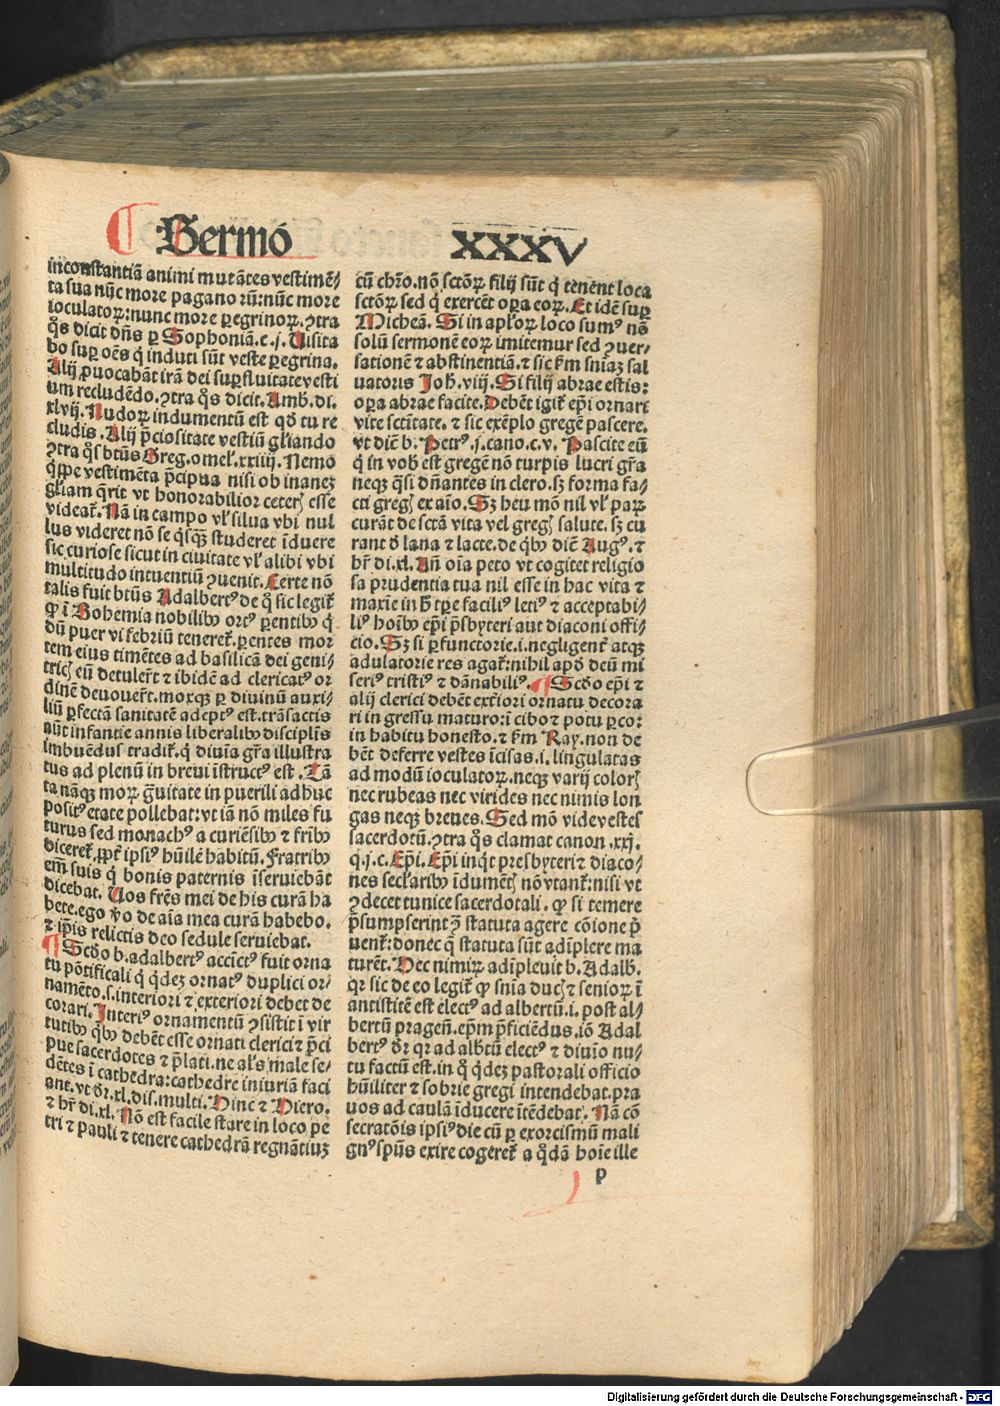 Sermo XXXV
inconstantiā animi mutātes vestimē⸗
ta sua nūc more pagano rū: nūc more
ioculatoꝝ: nunc more peregrinoꝝ. ꝯtra
q̄s dicit dn̄s ꝑ Sophoniā.c.j. Uisita
bo suꝑ oēs q̇ induti sūt veste ꝑegrina.
Alij ꝓuocabāt irā dei suꝑfluitate vesti
um recludēdo. ꝯtra q̄s dicit. Amb. di.
xlvij. Nudoꝝ indumentū est qd̄ tu re
cludis. Alij p̄ciositate vestiū gl̄iando
ꝯtra q̄s btūs Greg. omel̓. xxiiij. Nemo
q̇ppe vestimēta p̄cipua nisi ob inanez
gl̄iam q̄rit vt honorabilior ceterꝭ esse
videat᷑. Nā in campo vl̓ silua vbi nul
lus videret nō se q̇sqꝫ studeret īduere
sic curiose sicut in ciuitate vl̓ alibi vbi
multitudo intuentiū ꝯuenit. Certe nō
talis fuit btūs Adalbertꝰ de q̊ sic legit᷑
ꝙ ī Bohemia nobilibꝫ ortꝰ ꝑentibꝫ q̇
dū puer vi febriū teneret᷑. ꝑentes mor
tem eius timētes ad basilicā dei geni⸗
tricꝭ eū detuler̄t ⁊ ibidē ad clericatꝰ or
dinē deuouer̄t. moxqꝫ ꝑ diuinū auxi⸗
liū ꝑfectā sanitatē adeptꝰ est. trāsactis
aūt infantie annis liberalibꝫ disciplīs
imbuēdus tradit᷑. q̇ diuīa gr̄a illustra
tus ad plenū in breui īstructꝰ est. Tā
ta nāqꝫ moꝝ g̊uitate in puerili adhuc
positꝰ etate pollebat: vt iā nō miles fu
turus sed monachꝰ a curiēsibꝫ ⁊ fr̄ibꝫ
diceret᷑. ꝓpt̄ ipsiꝰ hūilē habitū. Fratribꝫ
em̄ suis q̇ bonis paternis īseruiebāt
dicebat. Uos fr̄es mei de his curā ha
bete. ego v̊o de aīa mea curā habebo.
⁊ ip̄is relictis deo sedule seruiebat.
¶ Scd̄o b. adalbertꝰ accīctꝰ fuit orna
tu pōtificali q̇ q̇dez ornatꝰ duplici or⸗
namēto. s. interiori ⁊ exteriori debet de
corari. Interiꝰ ornamentū ꝯsistit ī vir
tutibꝫ q̇bꝫ debēt esse ornati clerici ⁊ p̄ci
pue sacerdotes ⁊ p̄lati. ne al̓s male se⸗
dētes ī cathedra: cathedre iniuriā faci
ant. vt dr̄. xl. dis. multi. Hinc ⁊ Hiero.
⁊ hr̄ di. xl. Nō est facile stare in loco pe
tri ⁊ pauli ⁊ tenere cathedrā regnātiuꝫ
cū chr̄o. nō sctōꝝ filij sūt q̇ tenent loca
sctōꝝ sed q̇ exercēt oꝑa eoꝝ. Et idē suꝑ
Micheā. Si in apl̓oꝝ loco sumꝰ nō
solū sermonē eoꝝ imitemur sed ꝯuer⸗
sationē ⁊ abstinentiā. ⁊ sic ẜm sn̄iaꝫ sal
uatoris Joh̄. viij. Si filij abrae estis:
oꝑa abrae facite. Debēt igit᷑ ep̄i ornari
vite sctitate. ⁊ sic exēplo gregē pascere.
vt dic̄ b. Petrꝰ. j. cano. c. v. Pascite eū
q̇ in vob̄ est gregē nō turpis lucri gr̄a
neqꝫ q̄si dn̄antes in clero. sꝫ forma fa⸗
cti gregꝭ ex aīo. Sꝫ heu mō nil vl̓ parꝝ
curāt de sctā vita vel gregꝭ salute. sꝫ cu
rant d̓ lana ⁊ lacte. de q̇bꝫ dic̄ Augꝰ. ⁊
hr̄ di. xl. An̄ oīa peto vt cogitet religio
sa prudentia tua nil esse in hac vita ⁊
maxīe in h̓ tꝑe faciliꝰ letiꝰ ⁊ acceptabi⸗
liꝰ hoībꝫ ep̄i p̄sbyteri aut diaconi offi⸗
cio. Sꝫ si ꝑfunctorie. i. negligent̄ atqꝫ
adulatorie res agat᷑: nihil apd̓ deū mi
seriꝰ tristiꝰ ⁊ dānabiliꝰ. ¶ Scd̄o ep̄i ⁊
alij clerici debēt exteriori ornatu decora
ri in gressu maturo: ī cibo ⁊ potu ꝑco:
in habitu honesto. ⁊ ẜm Ray. non de
bēt deferre vestes īcisas. i. lingulatas
ad modū ioculatoꝝ. neqꝫ varij colorꝭ
nec rubeas nec virides nec nimis lon
gas neqꝫ breues. Sed mō vide vestes
sacerdotū. ꝯtra q̊s clamat canon. xxj.
q. j. c. Ep̄i. Ep̄i inq̇t presbyteri ⁊ diaco⸗
nes secl̓aribꝫ īdumētꝭ nō vtant᷑: nisi vt
ꝯdecet tunice sacerdotali. ꝙ si temere
p̄sumpserint ꝯ̄ statuta agere cōione p̄
uent᷑: donec q̄ statuta sūt adīplere ma
turēt. Hec nimiꝝ adīpleuit b. Adalb̄.
qꝛ sic de eo legit᷑ ꝙ sn̄ia ducꝭ ⁊ senioꝝ ī
antistitē est electꝰ ad albertū. i. post al⸗
bertū pragen̄. ep̄m p̄ficiēdus. iō Adal
bertꝰ dr̄ qꝛ ad alb̓tū electꝰ ⁊ diuīo nu⸗
tu factū est. in q̊ q̇dez pastorali officio
hūiliter ⁊ sobrie gregi intendebat. pra
uos ad caulā īducere ītēdebat. Nā cō
secratōis ipsiꝰ die cū ꝑ exorcismū mali
gnꝰ spūs exire cogeret᷑ a q̊dā hoīe ille
p
Digitalisierung gefördert durch die Deutsche Forschungsgemeinschaft - DFG